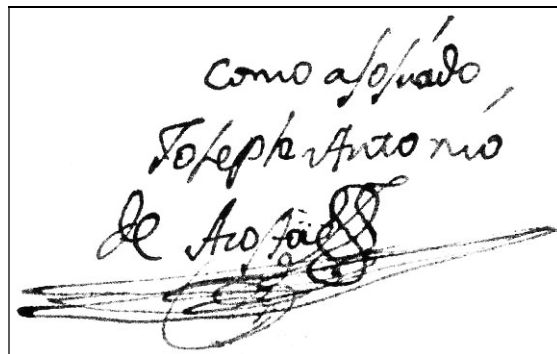 Como asosiado
Joseph Antonio
de Acosta